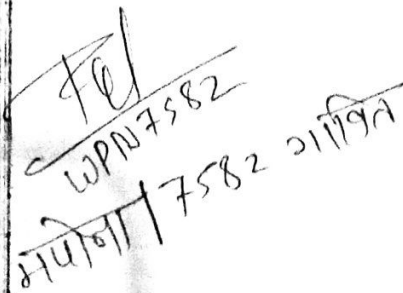 WPN7582
मपोना/7582 गावित